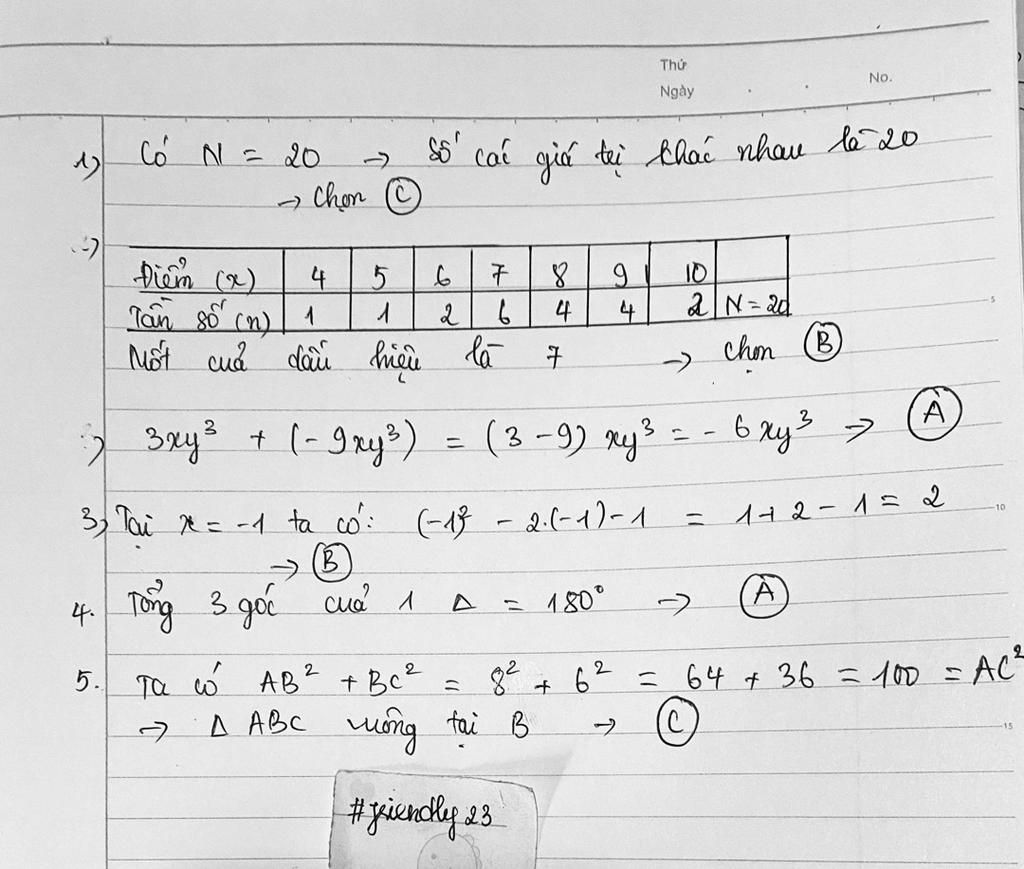 Thứ
Ngày
No.
1) Có N = 20 → Số các giá trị khác nhau là 20
→ Chọn C
Điểm (x) 4 5 6 7 8 9 10
Tần số (n) 1 1 2 6 4 4 2 N = 20
Mốt của dấu hiệu là 7 → chọn B
3xy³ + (-9xy³) = (3 - 9) xy³ = - 6xy³ → A
3) Tại x = -1 ta có: (-1)² - 2.(-1) - 1 = 1 + 2 - 1 = 2
→ B
4. Tổng 3 góc của 1 Δ = 180° → A
5. Ta có AB² + BC² = 8² + 6² = 64 + 36 = 100 = AC²
→ Δ ABC vuông tại B → C
#friendly23
5
10
15